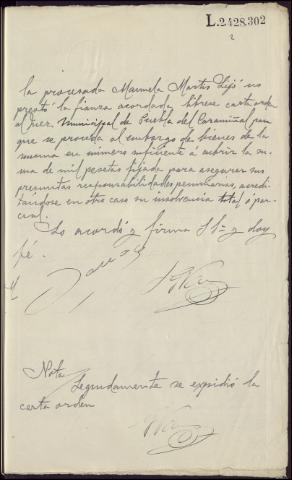 L.2428.302
2
la procesada Manuela Martis no
prestó la fianza acordada, líbrese carta orden
al Juez municipal de Puebla del Caramiñal para
que se proceda al embargo de bienes de la
misma en número suficiente á cubrir la su-
ma de mil pesetas fijada para asegurar sus
presuntas responsabilidades pecuniarias, acredi-
tándose en otro caso su insolvencia total ó par-
cial.
Lo acordó y firma S Sª y doy
fé.
Nota
Seguidamente se expidió la
carta orden